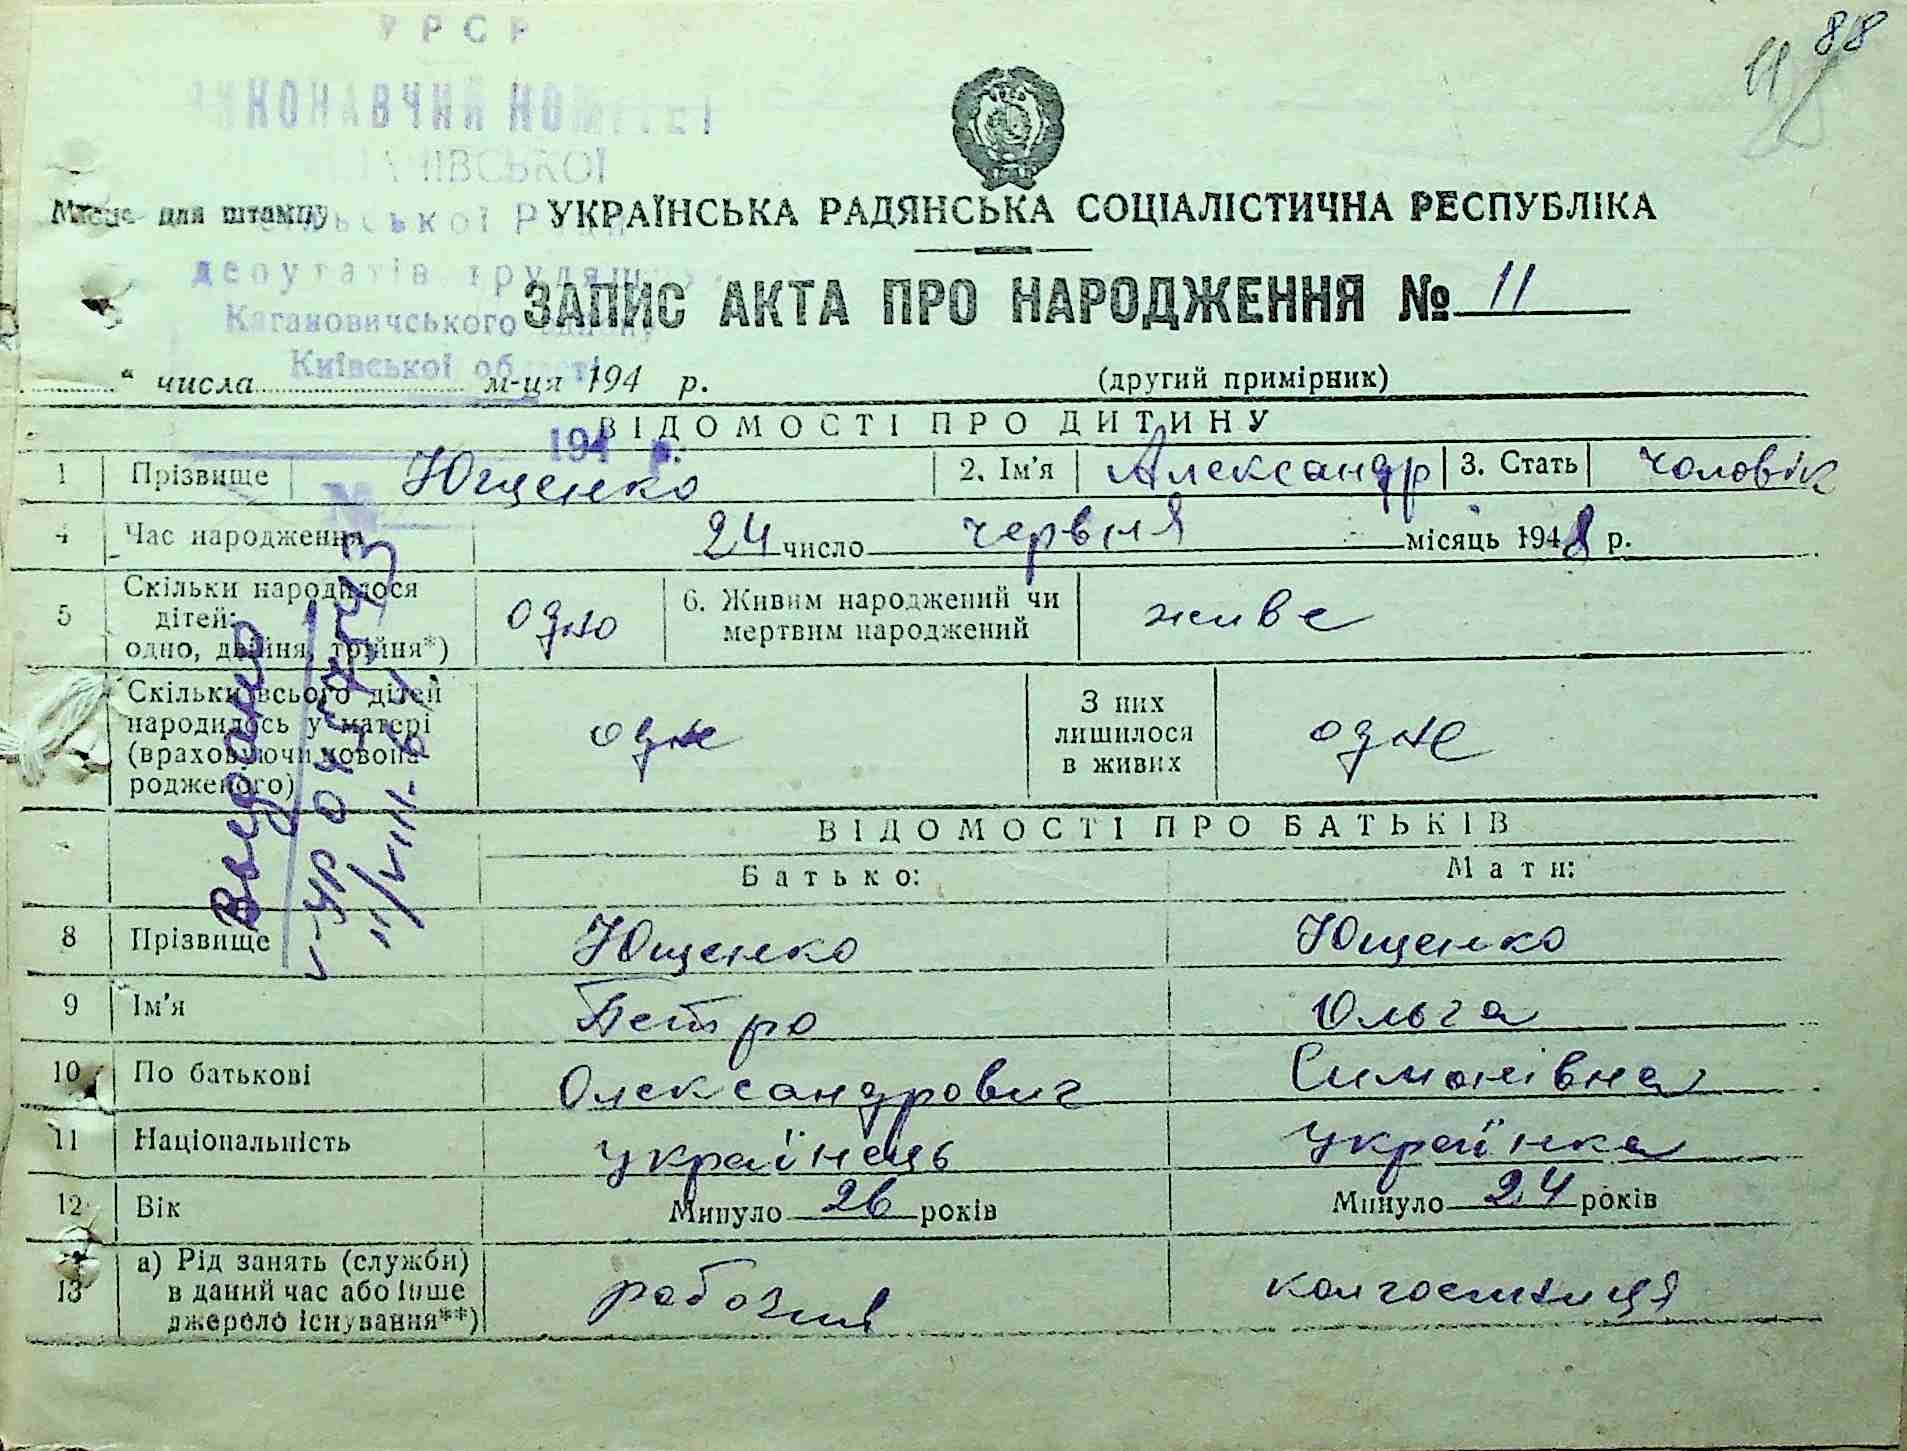 УРСР
88
11
ВИКОНАВЧИЙ КОМІТЕТ
Місце для штампу
сільської Ради
УКРАЇНСЬКА РАДЯНСЬКА СОЦІАЛІСТИЧНА РЕСПУБЛІКА
депутатів трудящих
ЗАПИС АКТА ПРО НАРОДЖЕННЯ № 11
Кагановичського району
Київської області
" числа м-ця 194 р. (другий примірник)
ВІДОМОСТІ ПРО ДИТИНУ
194 р.
1 Прізвище Ющенко 2. Ім'я Александр 3. Стать чоловік
№
4 Час народження 24 число червня місяць 1948 р.
5 Скільки народилося дітей: одно, двійня, трійня*) одно 6. Живим народжений чи мертвим народжений живе
Скільки всього дітей народилось у матері (враховуючи новона родженого) одне З них лишилося в живих одне
Выдано
ВІДОМОСТІ ПРО БАТЬКІВ
Батько: Мати:
8 Прізвище Ющенко Ющенко
9 Ім'я Петро Ольга
10 По батькові Олександрович Симонівна
11 Національність українець українка
12 Вік Минуло 26 років Минуло 24 років
13 а) Рід занять (служби) в даний час або інше джерело існування**) рабочий колгоспниця